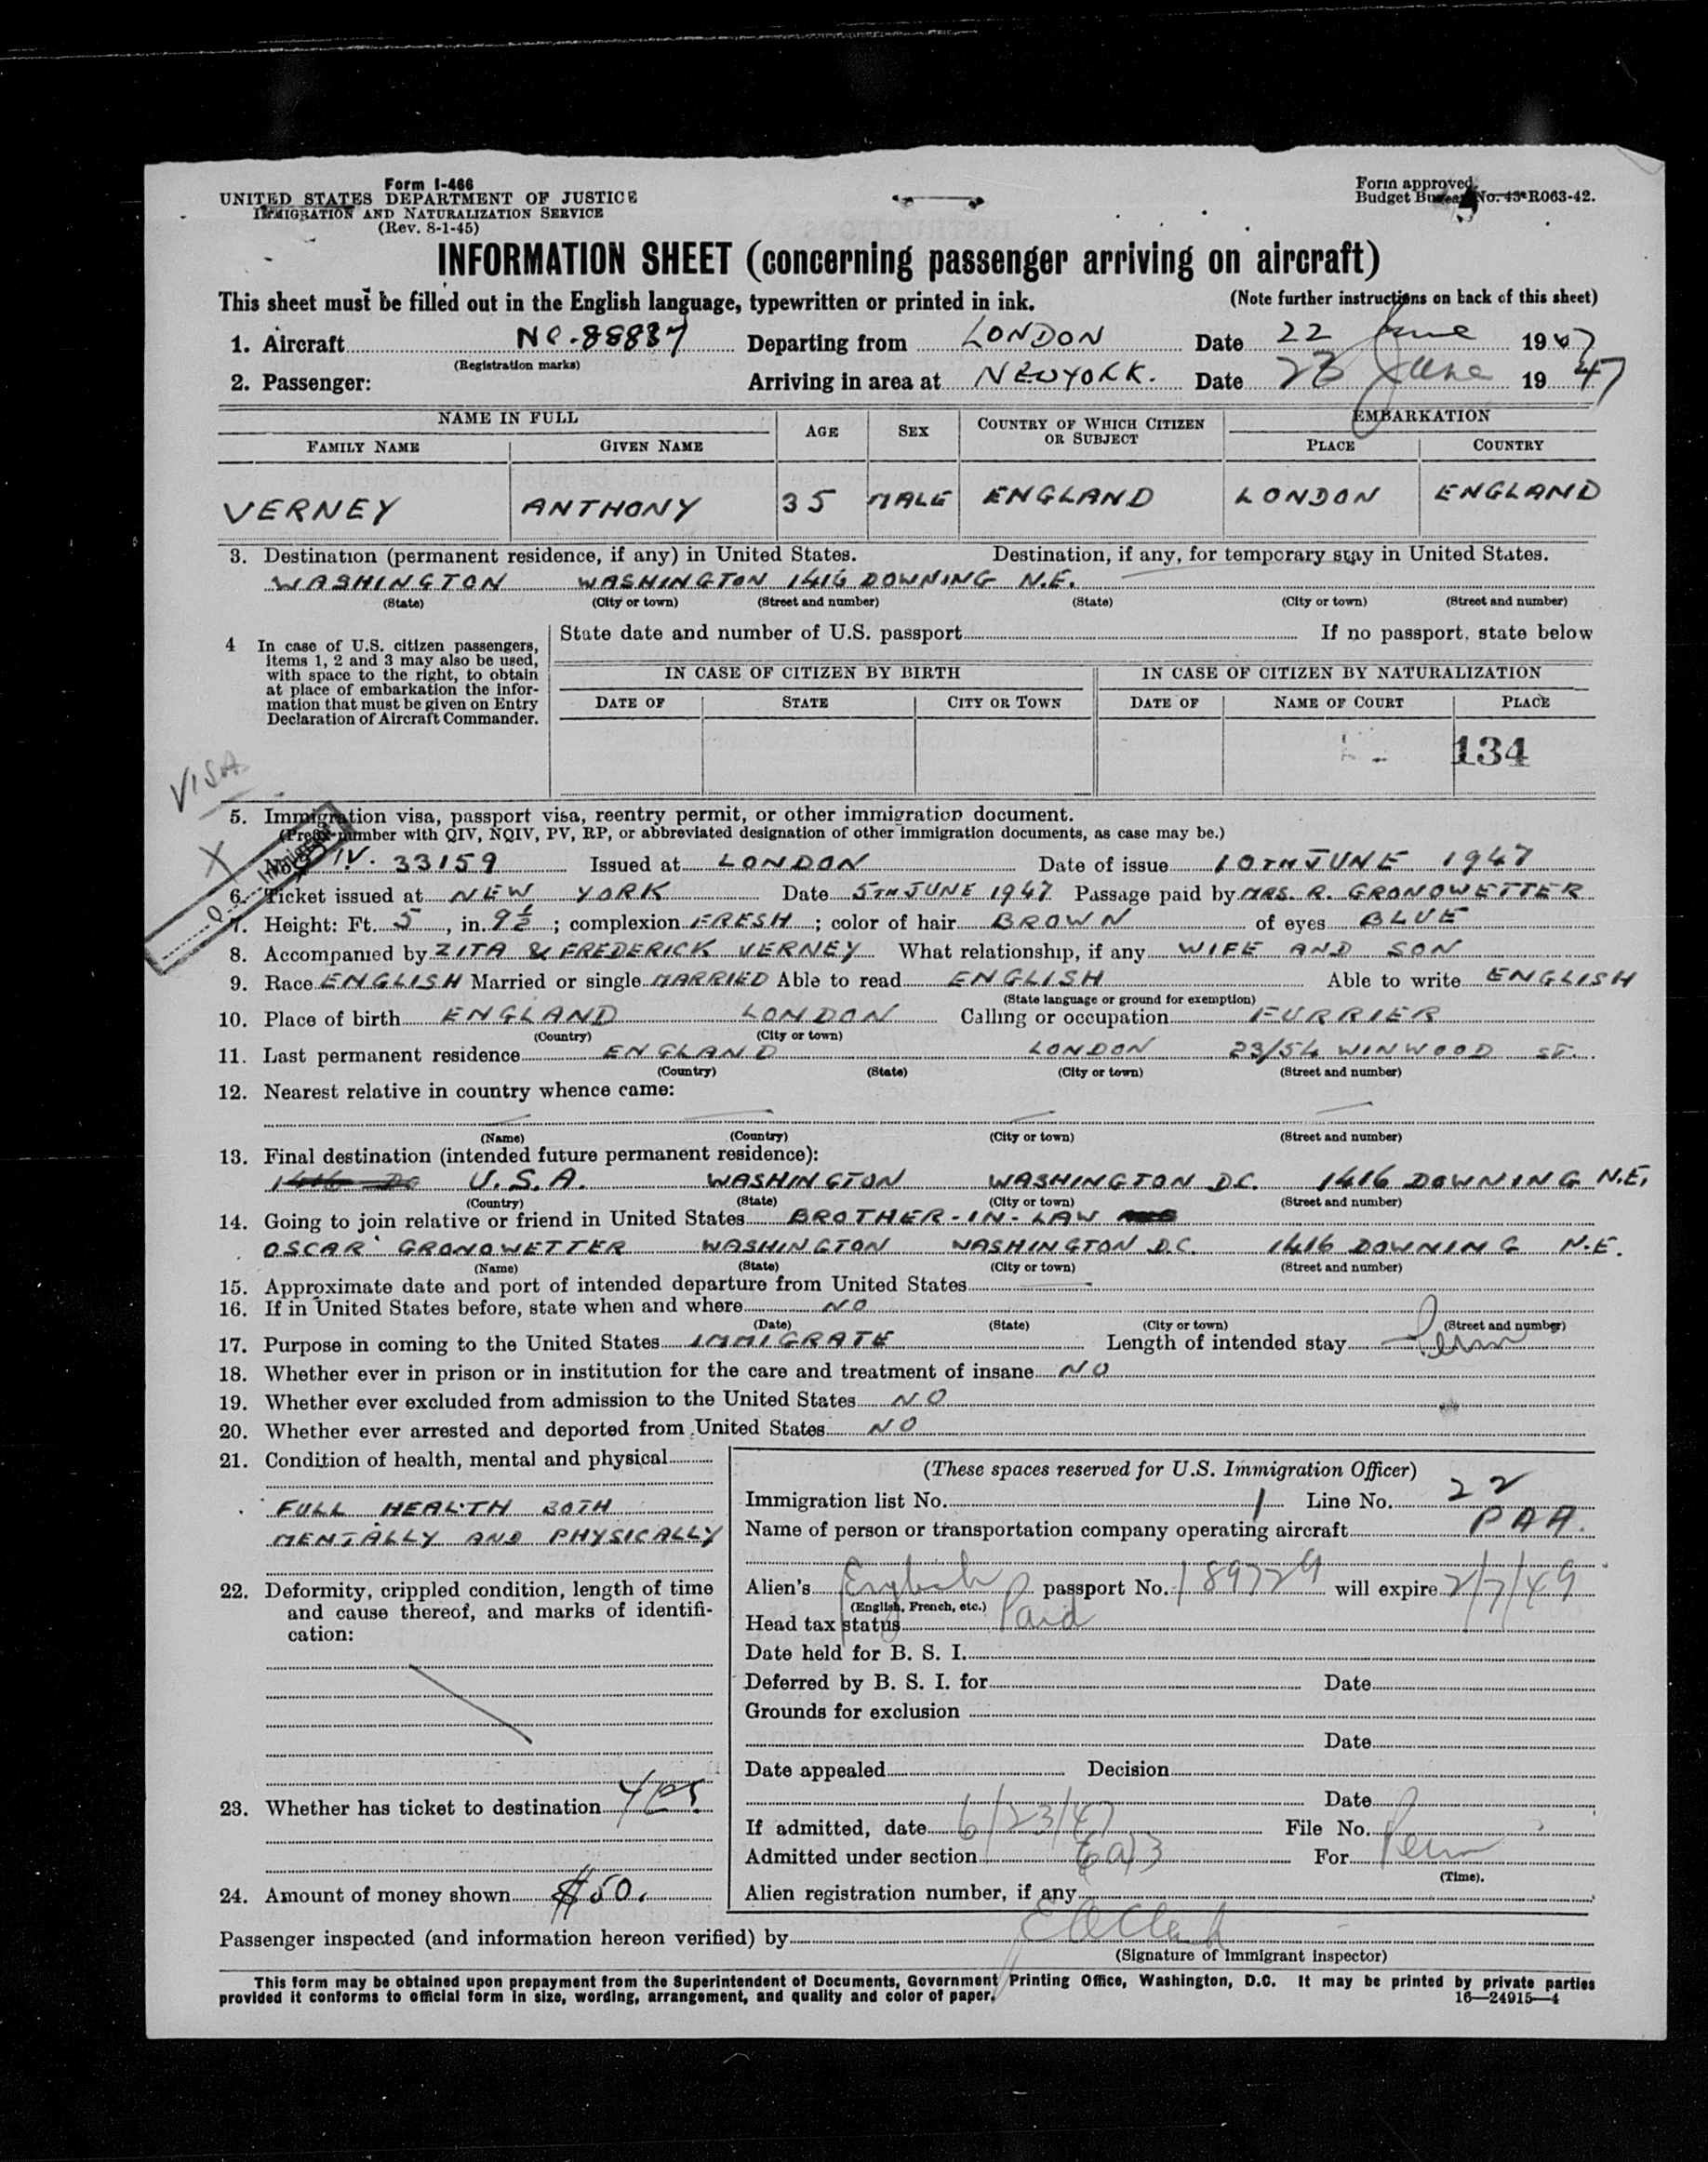 Form I-466
UNITED STATES DEPARTMENT OF JUSTICE
IMMIGRATION AND NATURALIZATION SERVICE
(Rev. 8-1-45)
Form approved.
Budget Bureau No. 43-R063-42.
INFORMATION SHEET (concerning passenger arriving on aircraft)
This sheet must be filled out in the English language, typewritten or printed in ink. (Note further instructions on back of this sheet)
1. Aircraft NC-88837 Departing from LONDON Date 22 June 1947
(Registration marks)
2. Passenger: Arriving in area at NEWYORK. Date 23 June 1947
NAME IN FULL AGE SEX COUNTRY OF WHICH CITIZEN OR SUBJECT EMBARKATION
FAMILY NAME GIVEN NAME PLACE COUNTRY
VERNEY ANTHONY 35 MALE ENGLAND LONDON ENGLAND
3. Destination (permanent residence, if any) in United States. Destination, if any, for temporary stay in United States.
WASHINGTON WASHINGTON 1416 DOWNING N.E.
(State) (City or town) (Street and number) (State) (City or town) (Street and number)
4 In case of U.S. citizen passengers, items 1, 2 and 3 may also be used, with space to the right, to obtain at place of embarkation the information that must be given on Entry Declaration of Aircraft Commander.
State date and number of U.S. passport If no passport, state below
IN CASE OF CITIZEN BY BIRTH IN CASE OF CITIZEN BY NATURALIZATION
DATE OF STATE CITY OR TOWN DATE OF NAME OF COURT PLACE
134
VISA
X
5. Immigration visa, passport visa, reentry permit, or other immigration document.
(Prefix number with QIV, NQIV, PV, RP, or abbreviated designation of other immigration documents, as case may be.)
IV. 33159 Issued at LONDON Date of issue 10TH JUNE 1947
6. Ticket issued at NEW YORK Date 5TH JUNE 1947 Passage paid by MRS. R. GRONOWETTER
7. Height: Ft. 5, in. 9½; complexion FRESH; color of hair BROWN of eyes BLUE
8. Accompanied by ZITA & FREDERICK VERNEY What relationship, if any WIFE AND SON
9. Race ENGLISH Married or single MARRIED Able to read ENGLISH Able to write ENGLISH
(State language or ground for exemption)
10. Place of birth ENGLAND LONDON Calling or occupation FURRIER
(Country) (City or town)
11. Last permanent residence ENGLAND LONDON 23/54 WINWOOD ST.
(Country) (State) (City or town) (Street and number)
12. Nearest relative in country whence came:
(Name) (Country) (City or town) (Street and number)
13. Final destination (intended future permanent residence):
U.S.A. WASHINGTON WASHINGTON D.C. 1416 DOWNING N.E.
(Country) (State) (City or town) (Street and number)
14. Going to join relative or friend in United States BROTHER-IN-LAW
OSCAR GRONOWETTER WASHINGTON WASHINGTON D.C. 1416 DOWNING N.E.
(Name) (State) (City or town) (Street and number)
15. Approximate date and port of intended departure from United States
16. If in United States before, state when and where NO
(Date) (State) (City or town) (Street and number)
17. Purpose in coming to the United States IMMIGRATE Length of intended stay Perm
18. Whether ever in prison or in institution for the care and treatment of insane NO
19. Whether ever excluded from admission to the United States NO
20. Whether ever arrested and deported from United States NO
21. Condition of health, mental and physical
FULL HEALTH BOTH
MENTALLY AND PHYSICALLY
22. Deformity, crippled condition, length of time and cause thereof, and marks of identification:
23. Whether has ticket to destination yes
24. Amount of money shown $50.
(These spaces reserved for U.S. Immigration Officer)
Immigration list No. 1 Line No. 22
Name of person or transportation company operating aircraft PAA.
Alien's English passport No. 189729 will expire 2/7/49
(English, French, etc.)
Head tax status Paid
Date held for B. S. I.
Deferred by B. S. I. for Date
Grounds for exclusion
Date
Date appealed Decision
Date
If admitted, date 6/23/47 File No.
Admitted under section 6(a)3 For Perm
(Time).
Alien registration number, if any
Passenger inspected (and information hereon verified) by
(Signature of Immigrant inspector)
This form may be obtained upon prepayment from the Superintendent of Documents, Government Printing Office, Washington, D.C. It may be printed by private parties
provided it conforms to official form in size, wording, arrangement, and quality and color of paper.
16—24915—4